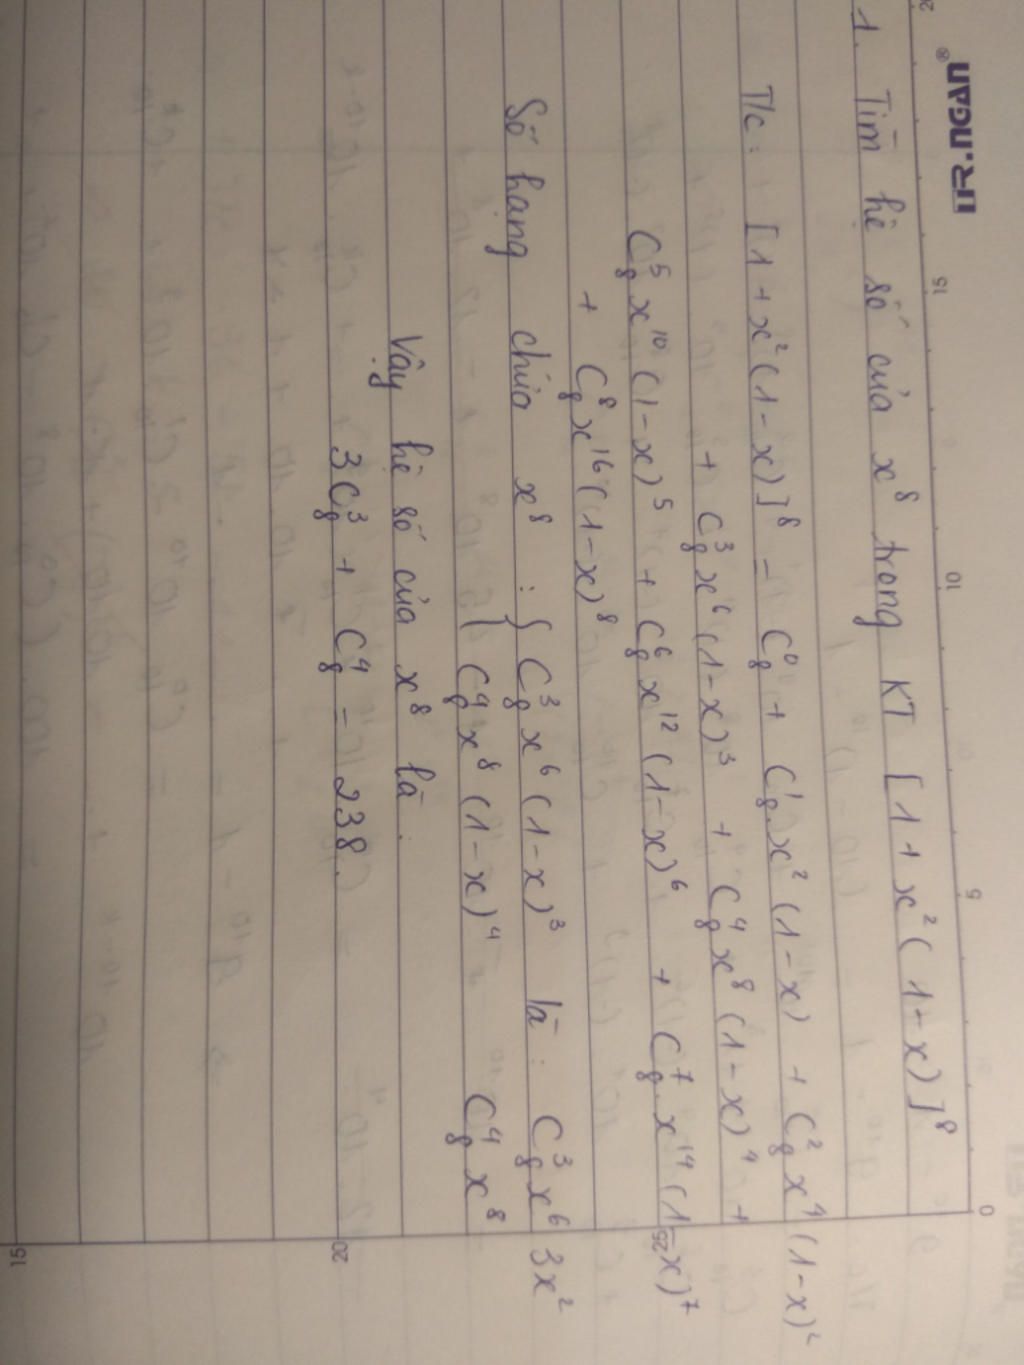 TR.NGAN®
1. Tìm hệ số của x⁸ trong KT [1 + x²(1 - x)]⁸
T/c: [1 + x²(1 - x)]⁸ = C₈⁰ + C₈¹ x²(1 - x) + C₈² x⁴(1 - x)²
+ C₈³ x⁶(1 - x)³ + C₈⁴ x⁸(1 - x)⁴ +
C₈⁵ x¹⁰(1 - x)⁵ + C₈⁶ x¹²(1 - x)⁶ + C₈⁷ x¹⁴(1 - x)⁷
+ C₈⁸ x¹⁶(1 - x)⁸
Số hạng chứa x⁸ : { C₈³ x⁶(1 - x)³ là : C₈³ x⁶ 3x²
C₈⁴ x⁸(1 - x)⁴ = C₈⁴ x⁸
Vậy hệ số của x⁸ là :
3C₈³ + C₈⁴ = 238.
20
15
10
5
0
25
20
15